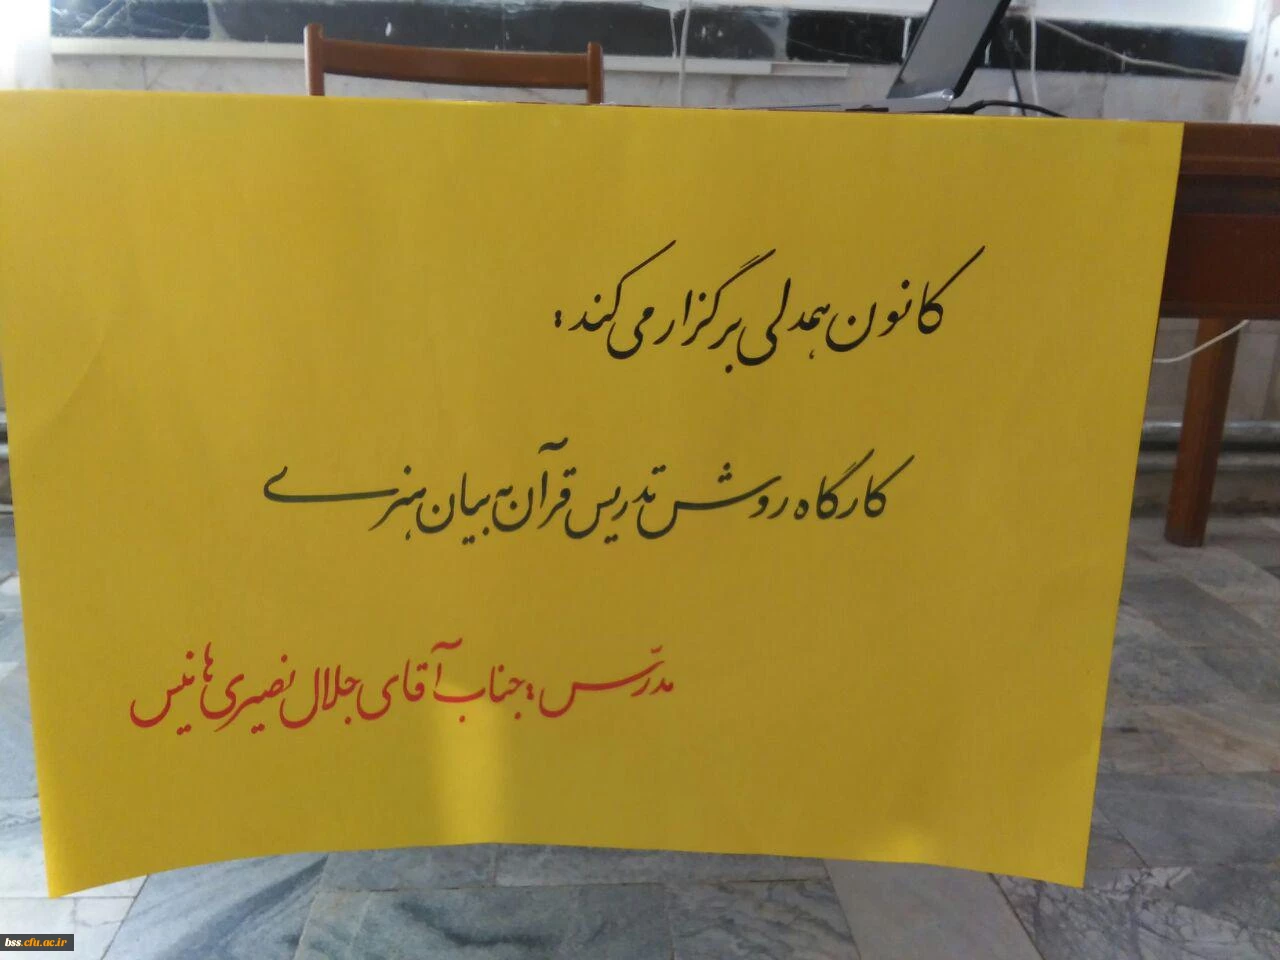 کانون همدلی برگزار می کند:
کارگاه روش تدریس قرآن به بیان هنری
مدرّس: جناب آقای جلال نصیری هانیس
bss.cfu.ac.ir